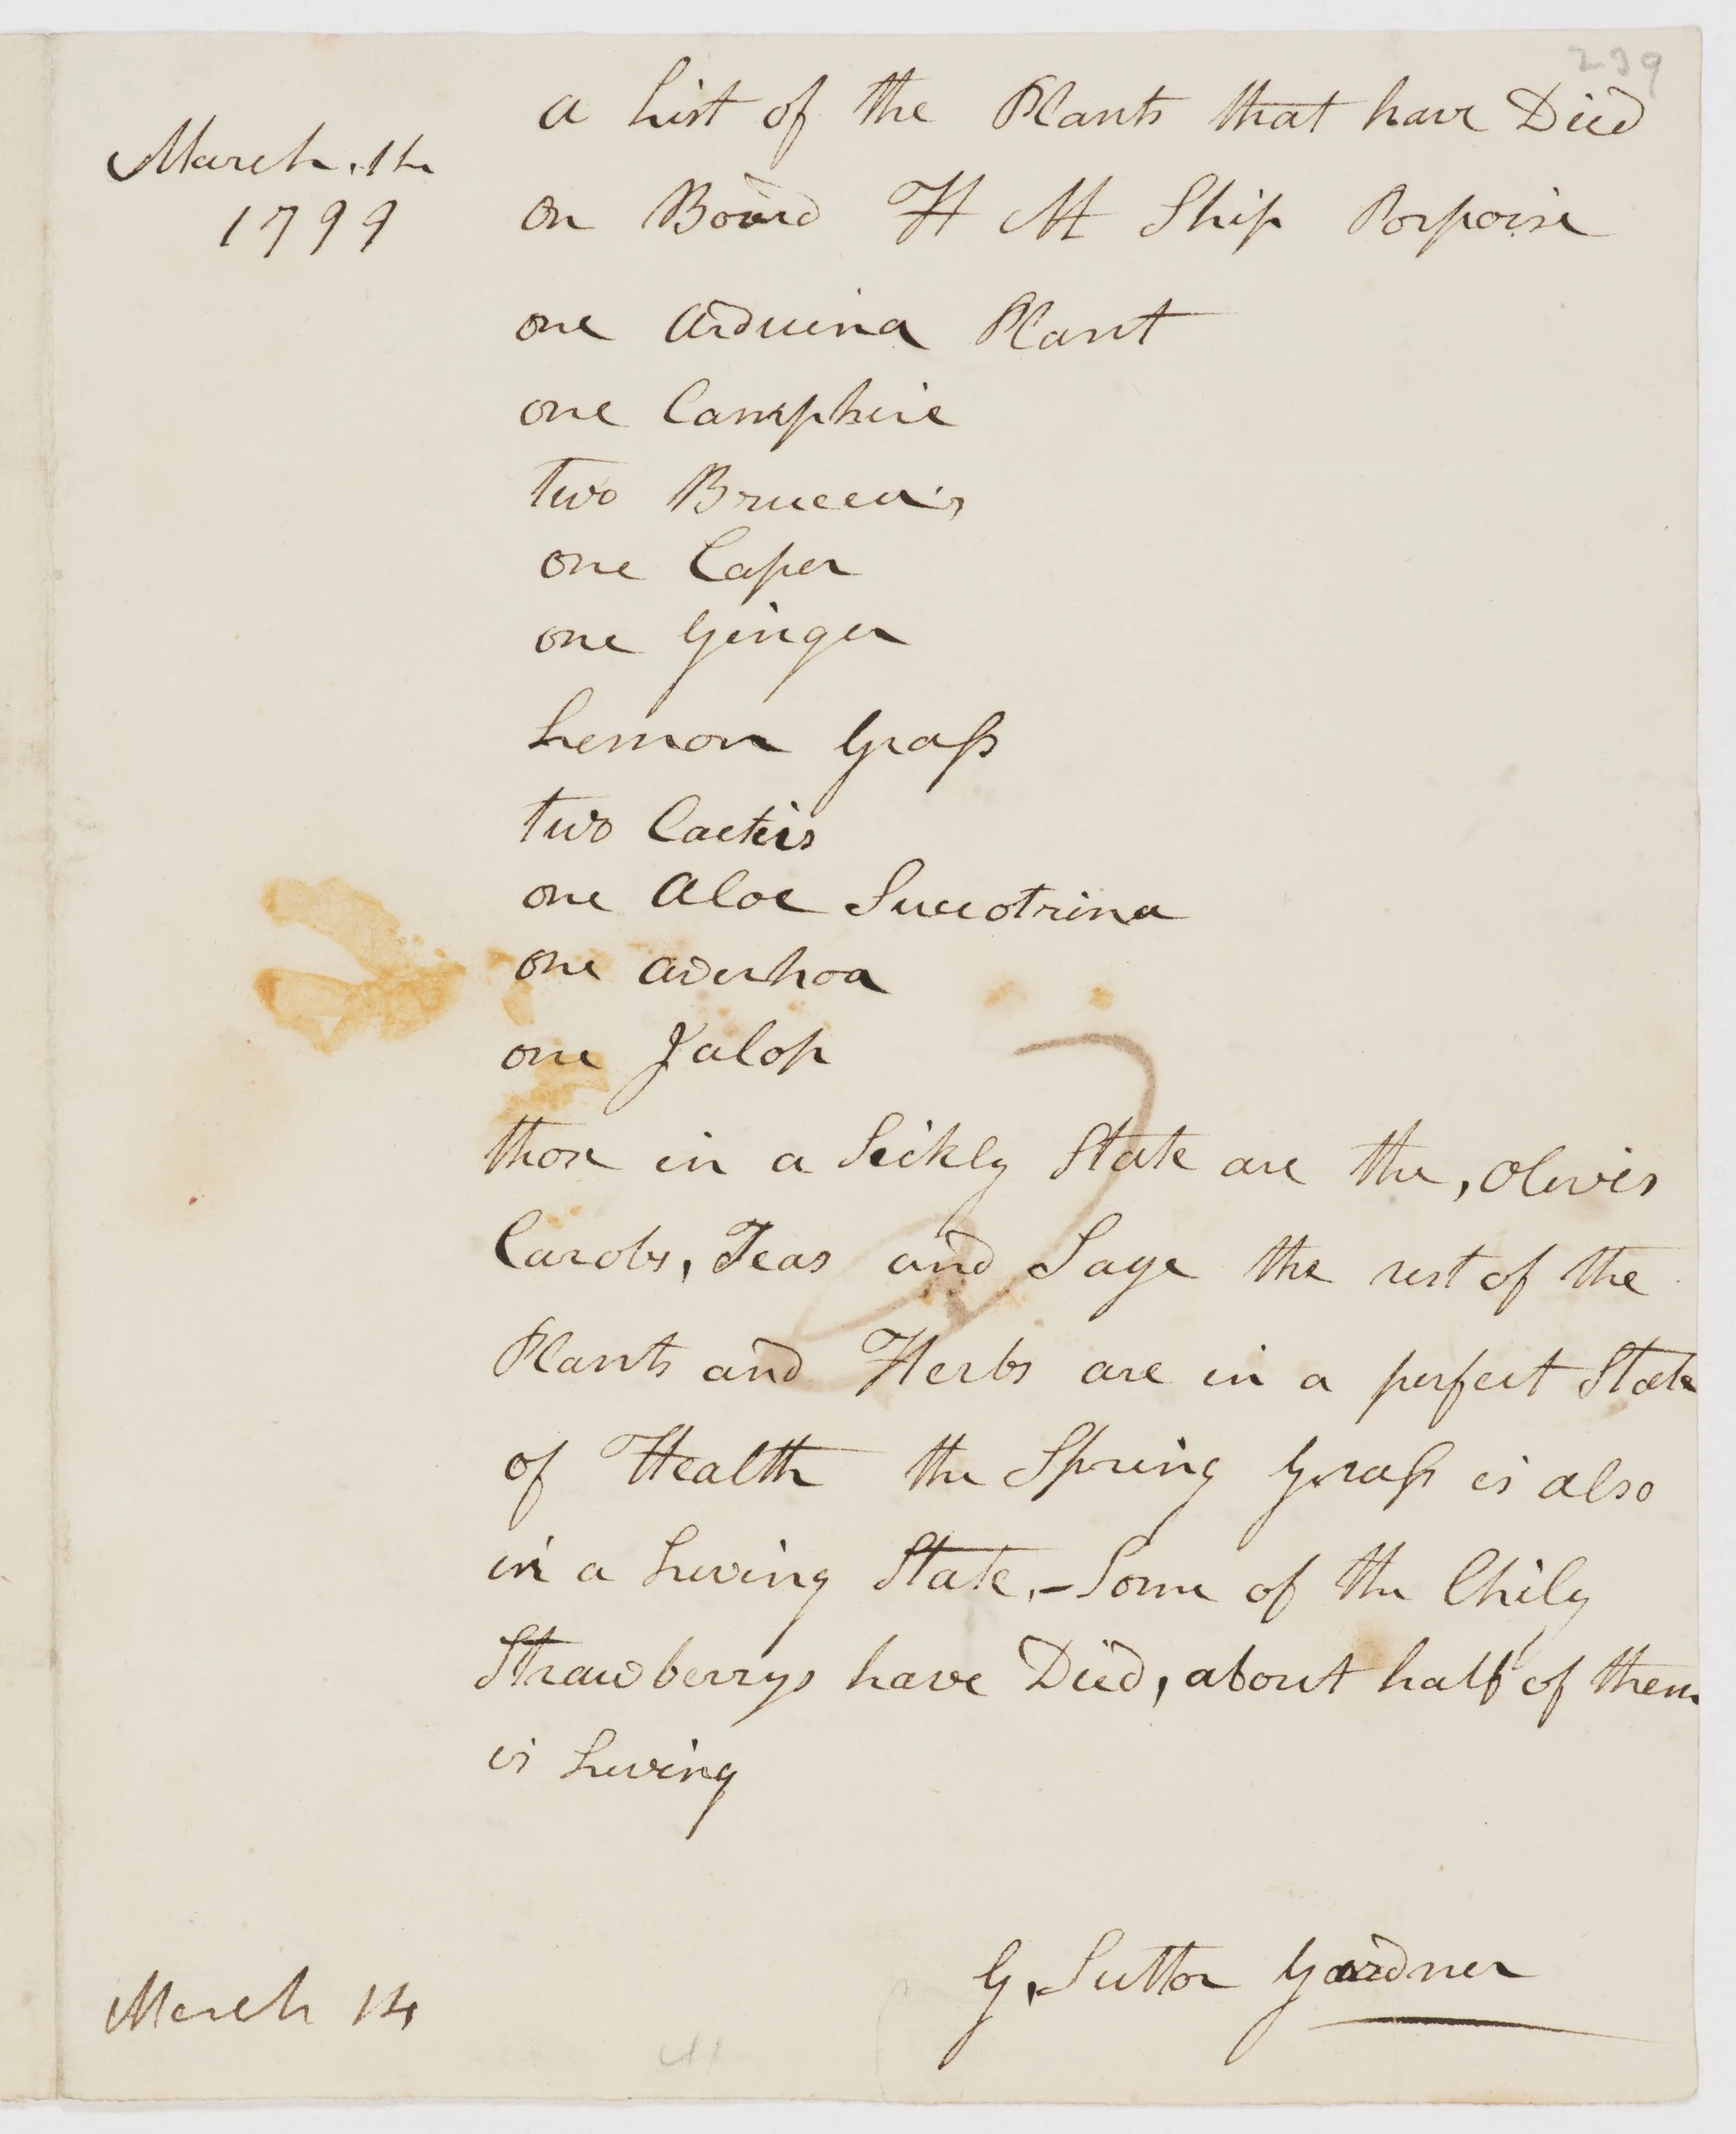 239
March. 14
1799
a List of the Plants that have Died
on Board H M Ship Porpoise
one Arduina Plant
one Camphire
two Brucea's
one Caper
one Ginger
Lemon Grass
two Cactus
one Aloe Succotrina
one Averhoa
one Jalop
those in a Sickly State are the, Olives
Carobs, Teas and Sage the rest of the
Plants and Herbs are in a perfect State
of Health the Spring Grass is also
in a Living State, - Some of the Chily
Strawberrys have Died, about half of them
is Living
G, Suttor Gardner
March 14